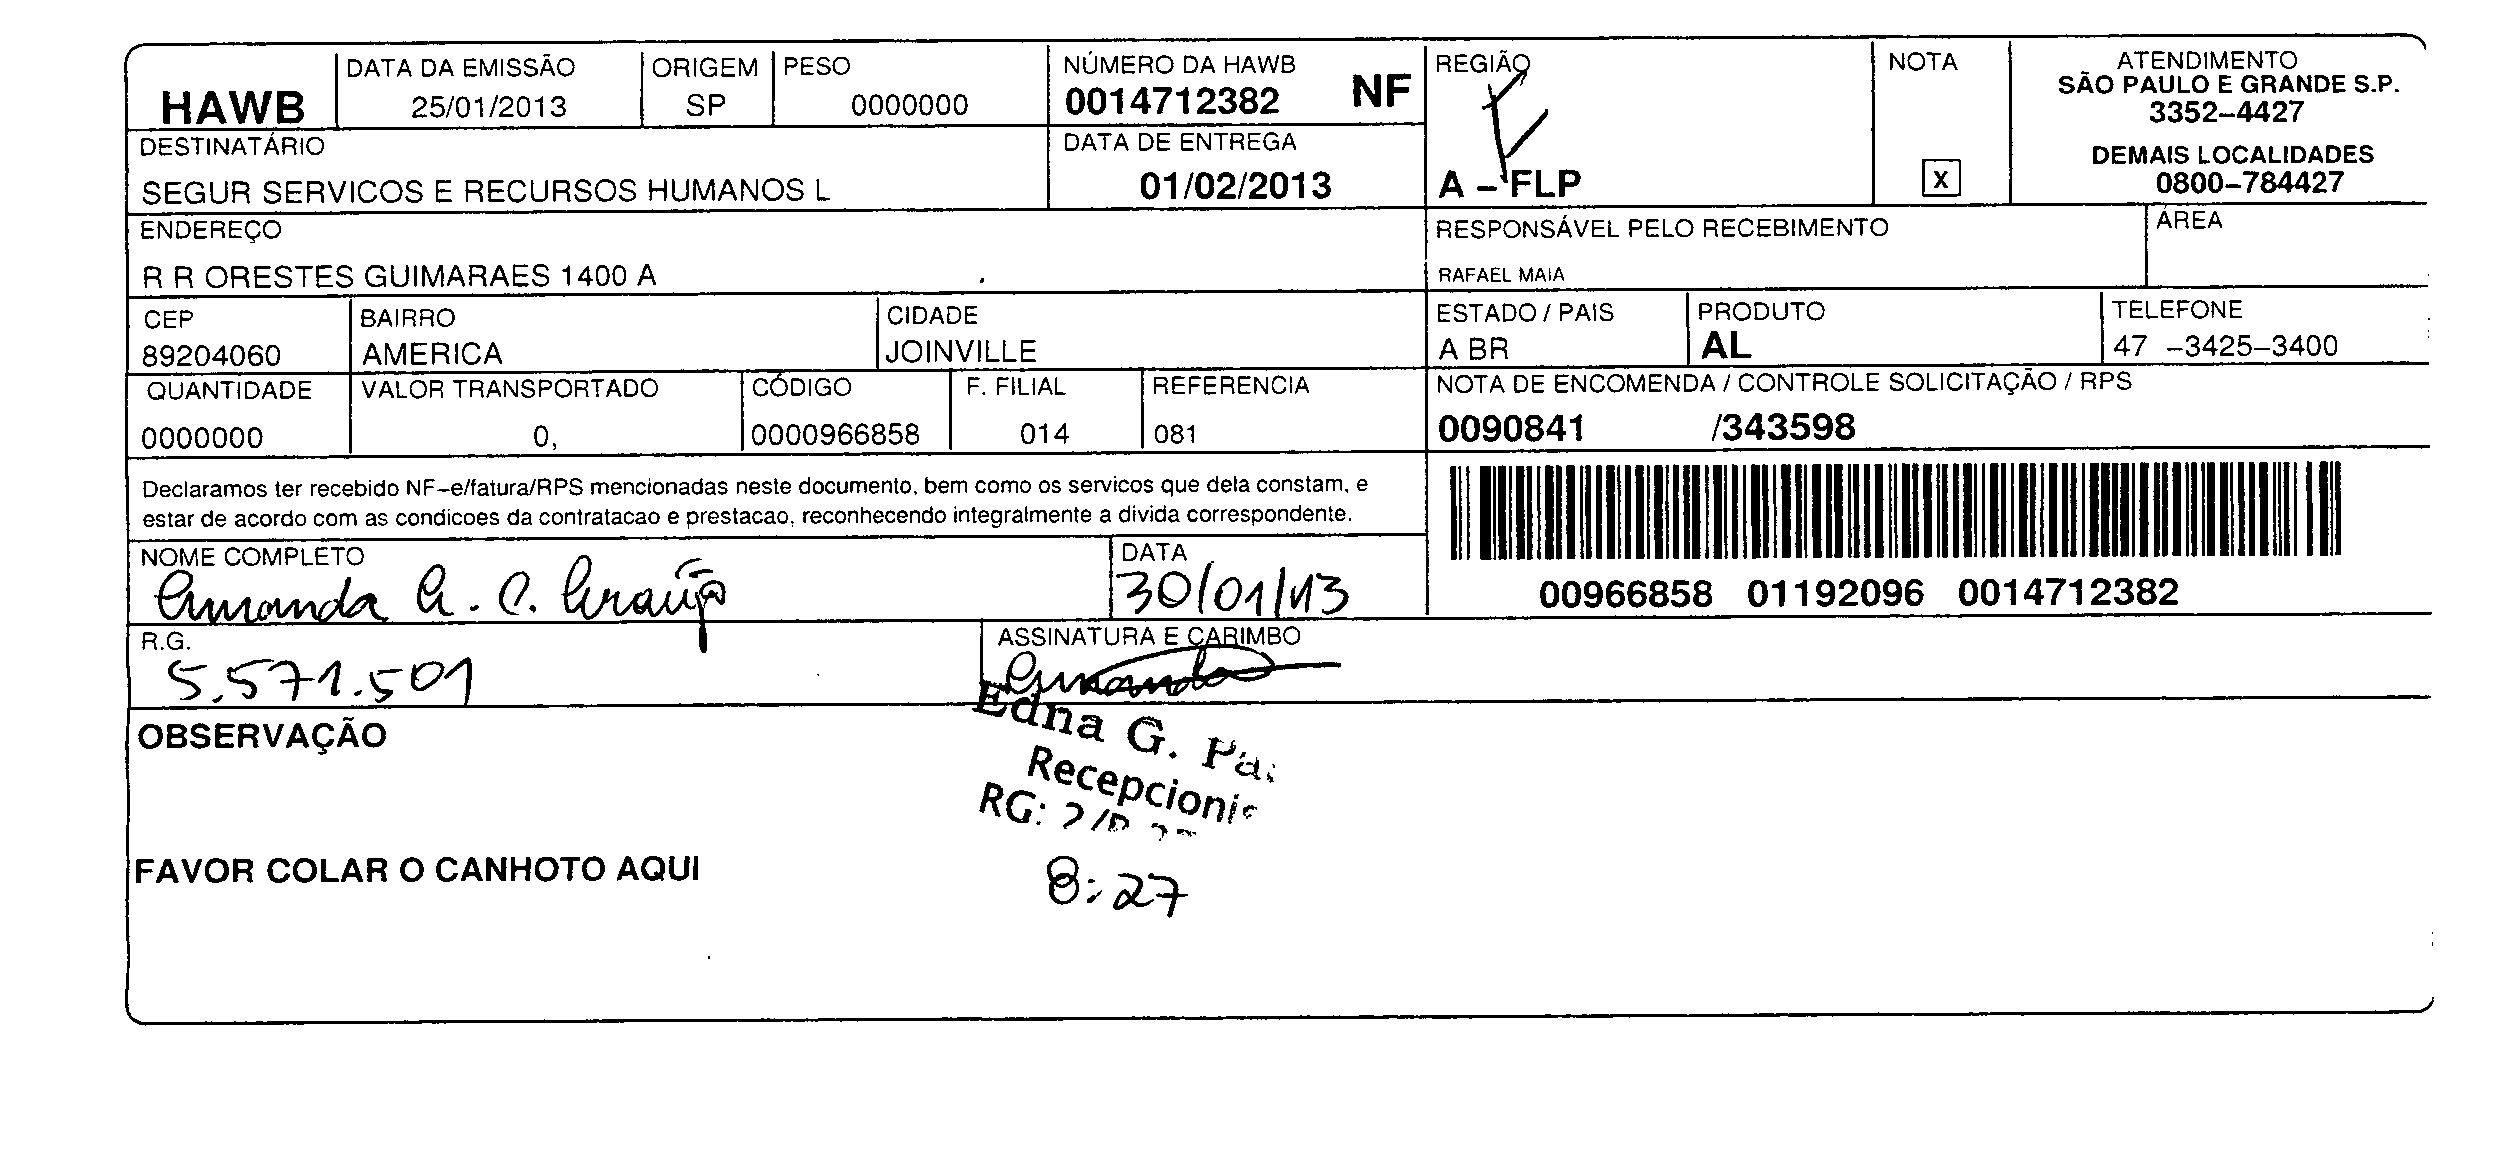 HAWB
DATA DA EMISSÃO
25/01/2013
ORIGEM
SP
PESO
0000000
NÚMERO DA HAWB
0014712382 NF
REGIÃO
A – FLP
NOTA
X
ATENDIMENTO
SÃO PAULO E GRANDE S.P.
3352–4427
DEMAIS LOCALIDADES
0800–784427
DESTINATÁRIO
SEGUR SERVICOS E RECURSOS HUMANOS L
DATA DE ENTREGA
01/02/2013
ENDEREÇO
R R ORESTES GUIMARAES 1400 A
RESPONSÁVEL PELO RECEBIMENTO
RAFAEL MAIA
ÁREA
CEP
89204060
BAIRRO
AMERICA
CIDADE
JOINVILLE
ESTADO / PAIS
A BR
PRODUTO
AL
TELEFONE
47 –3425–3400
QUANTIDADE
0000000
VALOR TRANSPORTADO
0,
CÓDIGO
0000966858
F. FILIAL
014
REFERENCIA
081
NOTA DE ENCOMENDA / CONTROLE SOLICITAÇÃO / RPS
0090841 /343598
Declaramos ter recebido NF–e/fatura/RPS mencionadas neste documento, bem como os servicos que dela constam, e
estar de acordo com as condicoes da contratacao e prestacao, reconhecendo integralmente a divida correspondente.
00966858 01192096 0014712382
NOME COMPLETO
Amanda A. C. Araújo
DATA
30/01/13
R.G.
5.571.501
ASSINATURA E CARIMBO
Amanda
Edna G.
RG:
8:27
OBSERVAÇÃO
FAVOR COLAR O CANHOTO AQUI